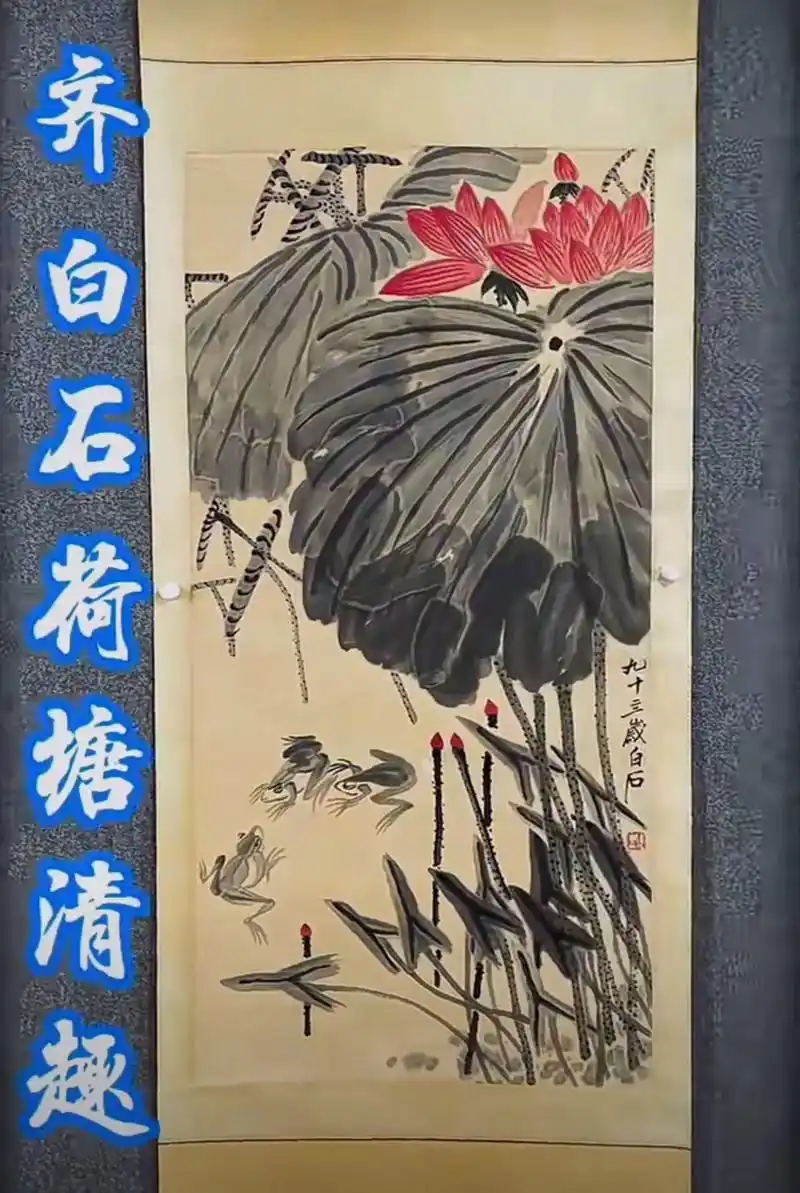 齐白石荷塘清趣
九十三岁白石